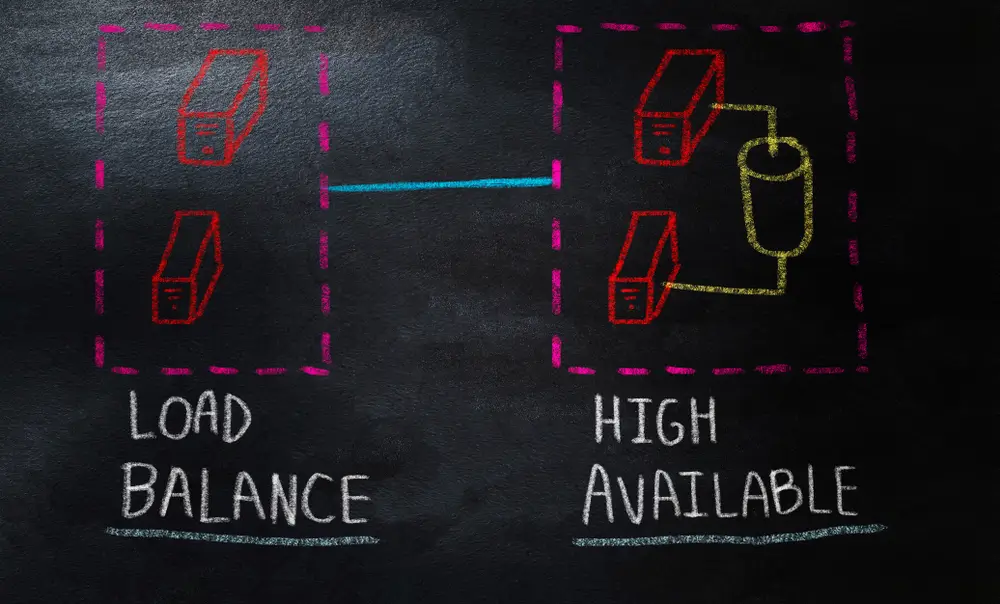 LOAD
BALANCE
HIGH
AVAILABLE